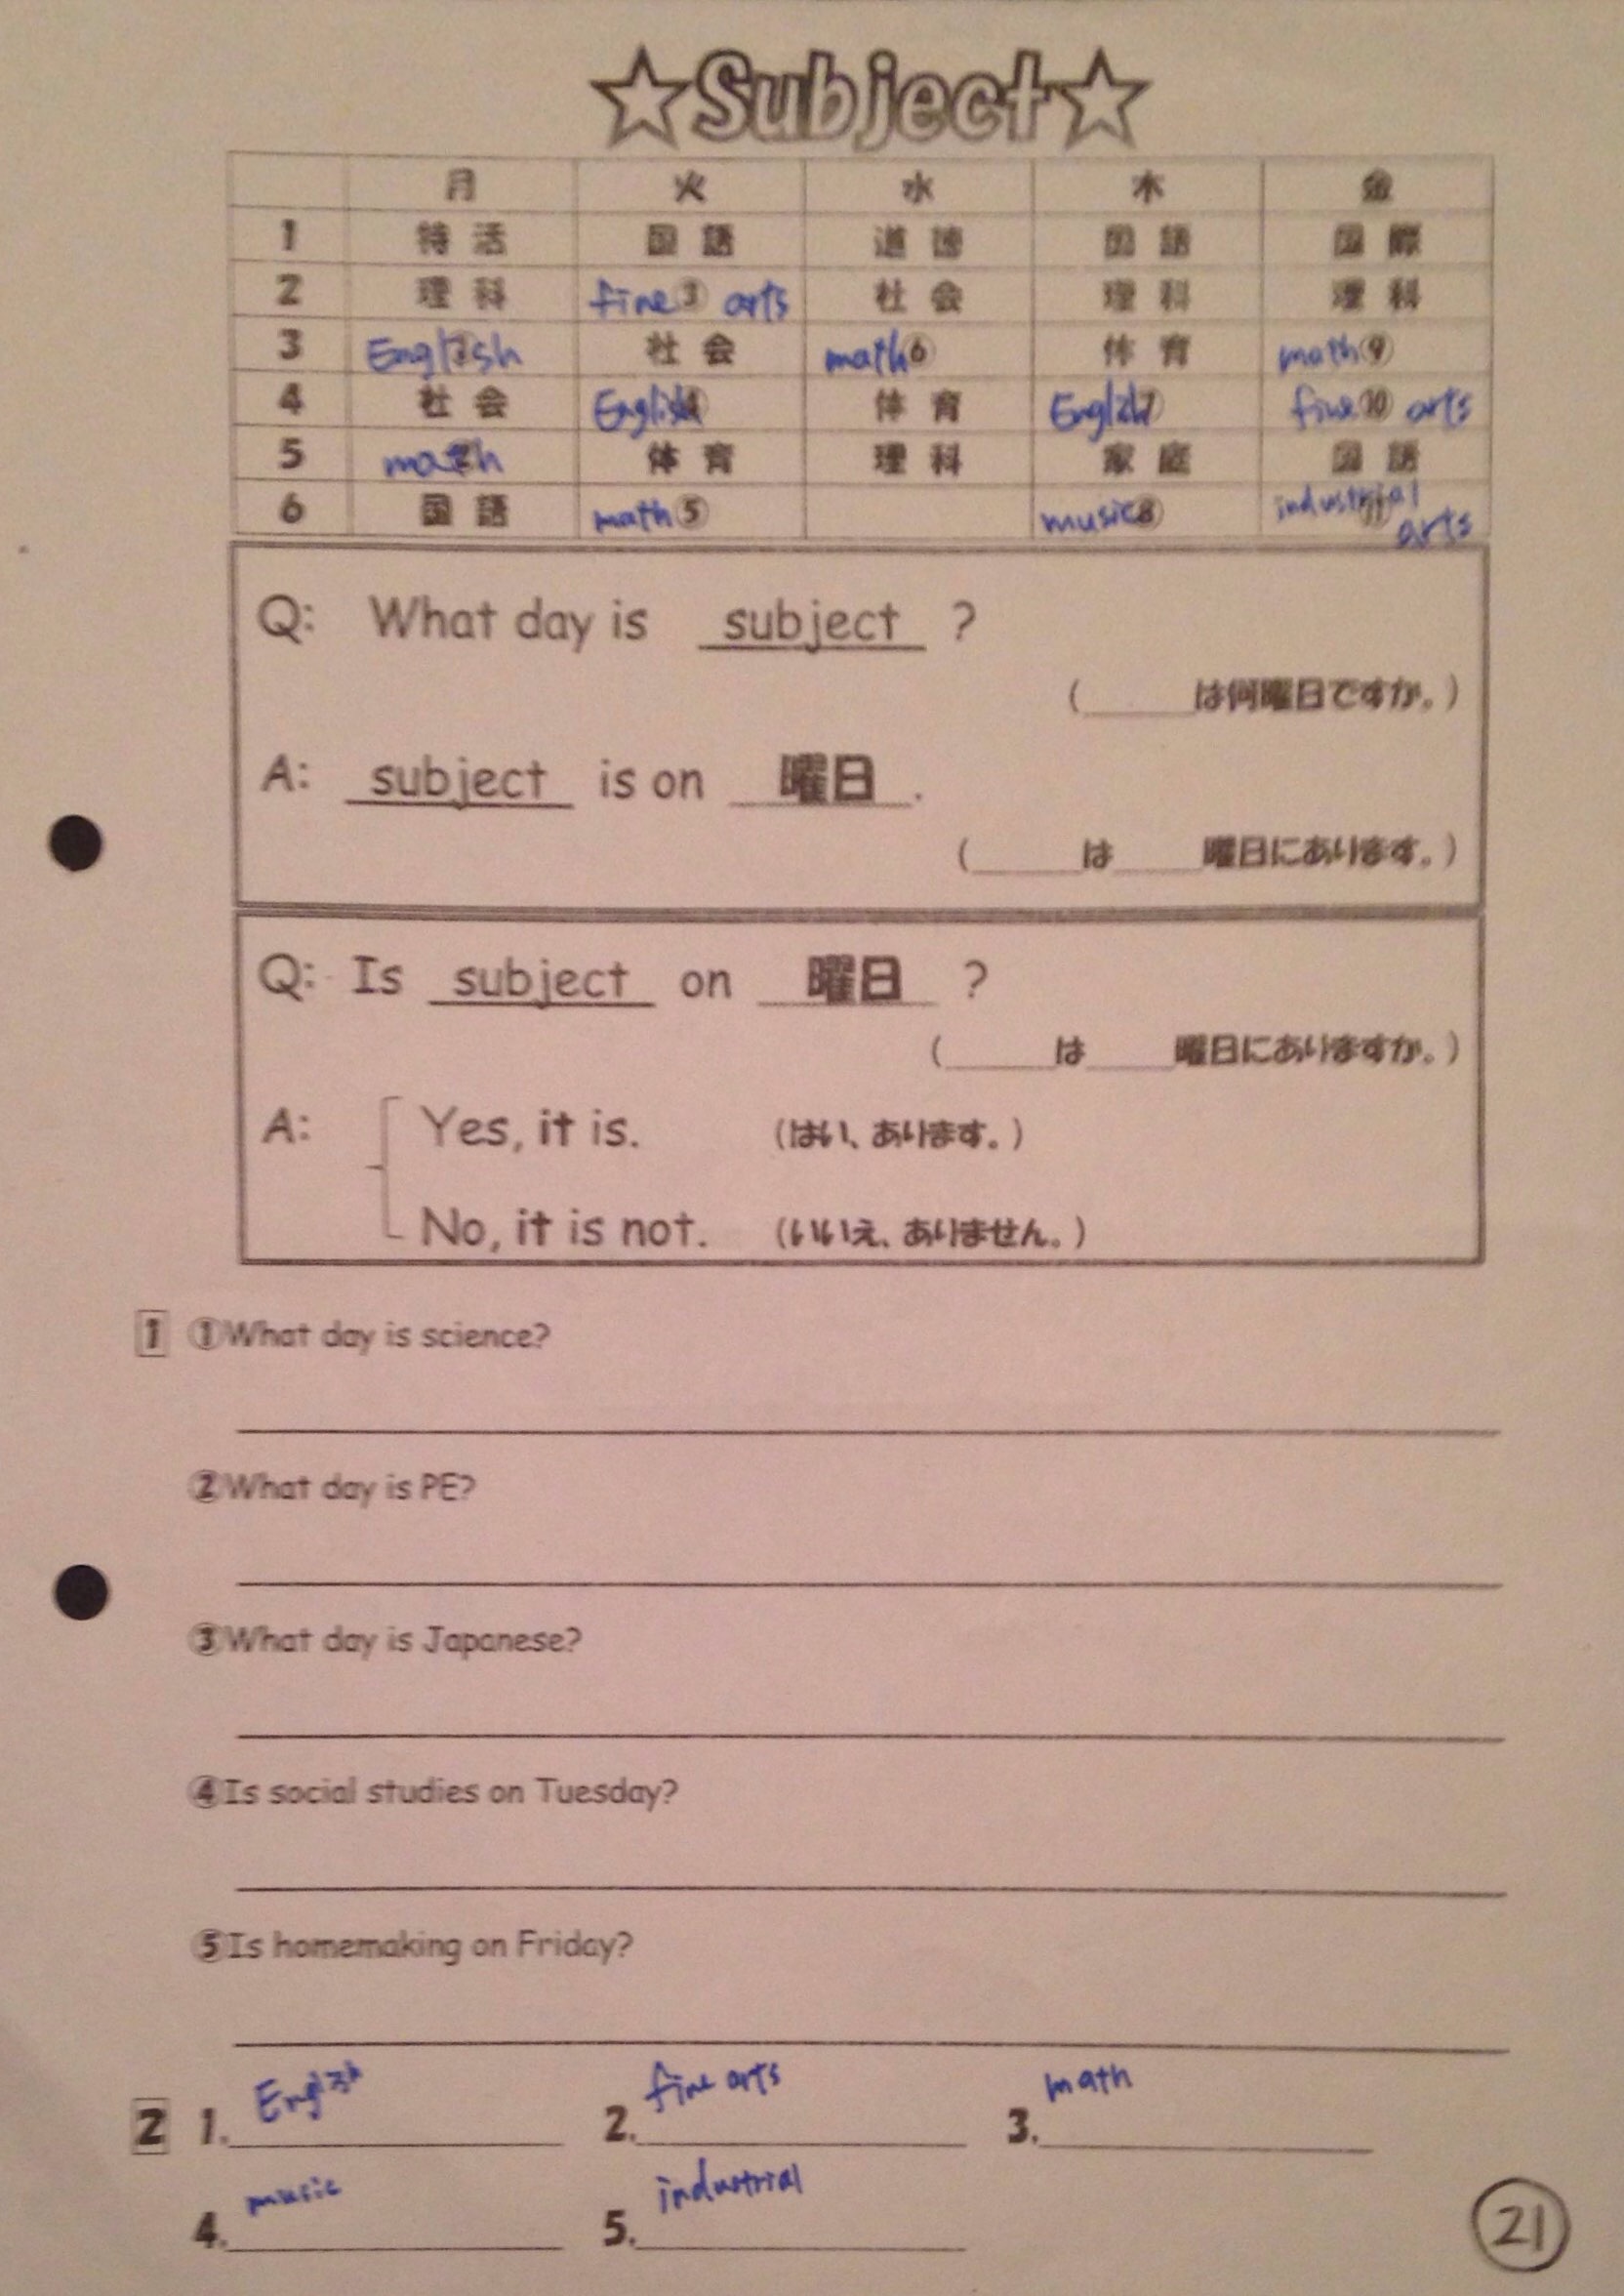 ☆Subject☆
月 火 水 木 金
1 特活 国語 道徳 国語 国際
2 理科 fine③ arts 社会 理科 理科
3 English 社会 math⑥ 体育 math⑨
4 社会 English④ 体育 English⑦ fine⑩ arts
5 math 体育 理科 家庭 国語
6 国語 math⑤ music⑧ industrial arts
Q: What day is subject ?
(____は何曜日ですか。)
A: subject is on 曜日.
(____は____曜日にあります。)
Q: Is subject on 曜日 ?
(____は____曜日にありますか。)
A: Yes, it is. (はい、あります。)
No, it is not. (いいえ、ありません。)
1 ①What day is science?
②What day is PE?
③What day is Japanese?
④Is social studies on Tuesday?
⑤Is homemaking on Friday?
2 1. English 2. fine arts 3. math
4. music 5. industrial
21